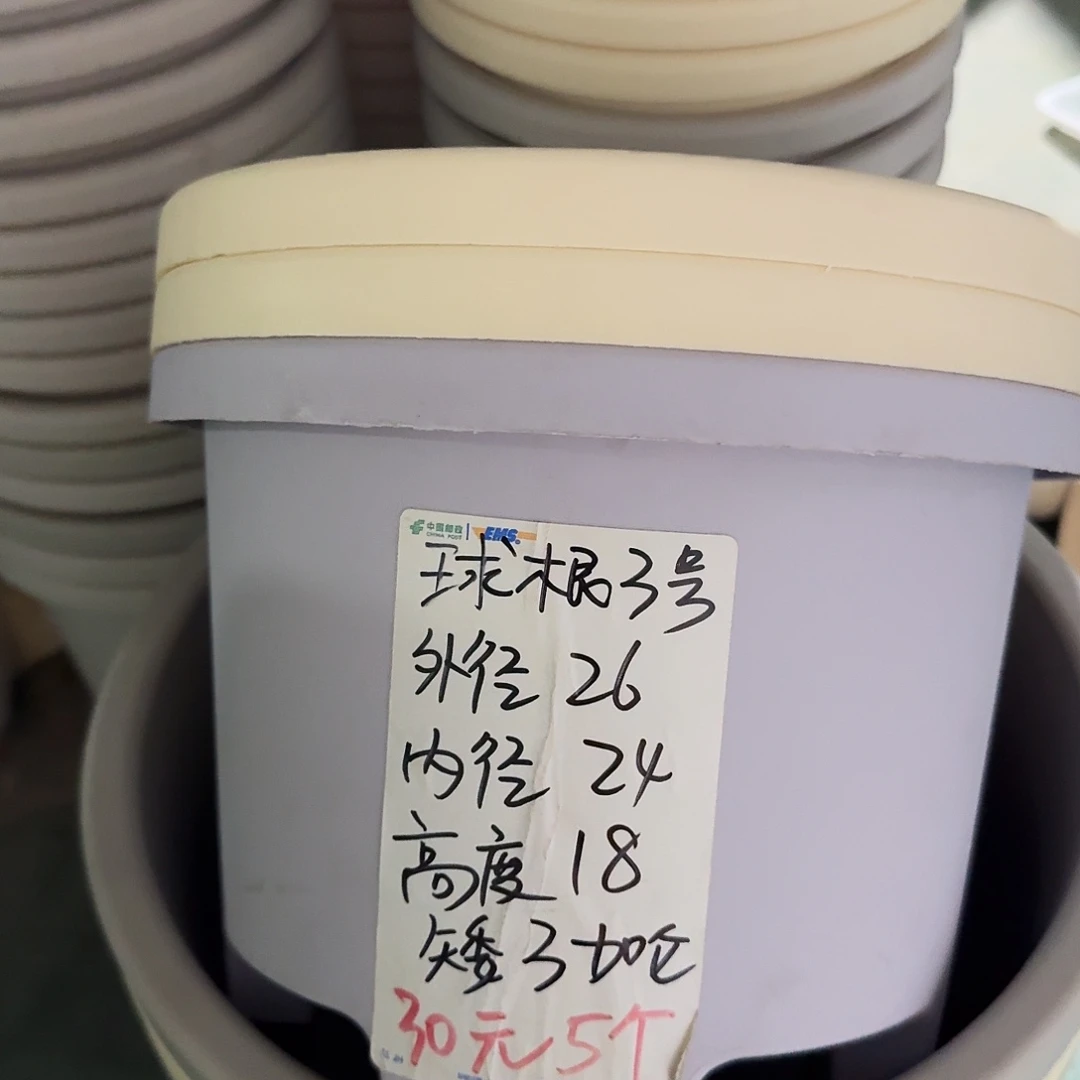 中国邮政 EMS
CHINA POST
球根3号
外径 26
内径 24
高度 18
矮3加仑
30元5个